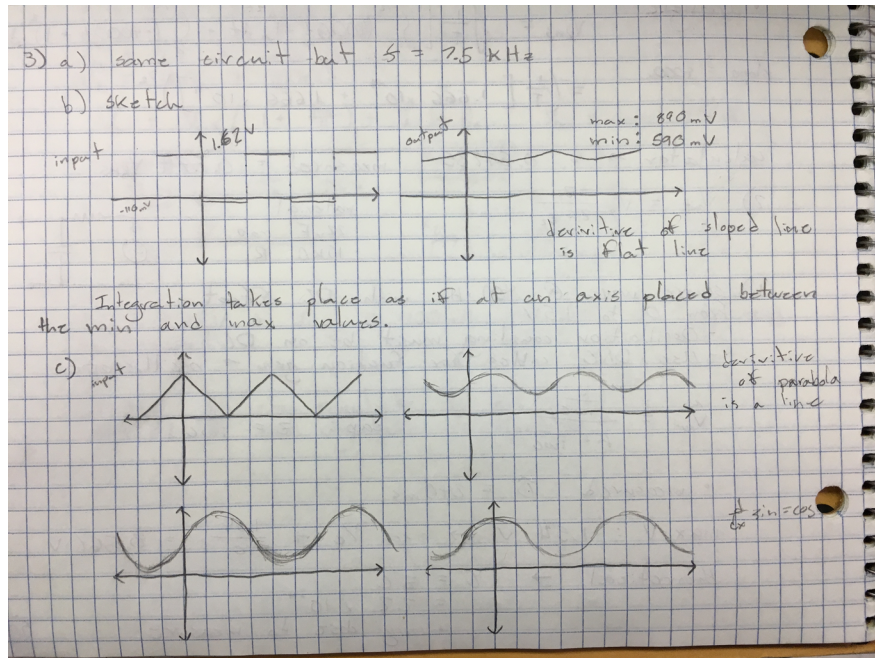 3) a) same circuit but f = 7.5 kHz
b) sketch
input
1.62V
-110mV
output
max: 890 mV
min: 590 mV
derivitive of sloped line
is flat line
Integration takes place as if at an axis placed between
the min and max values.
c)
input
derivitive
of parabola
is a line
d/dx sin = cos